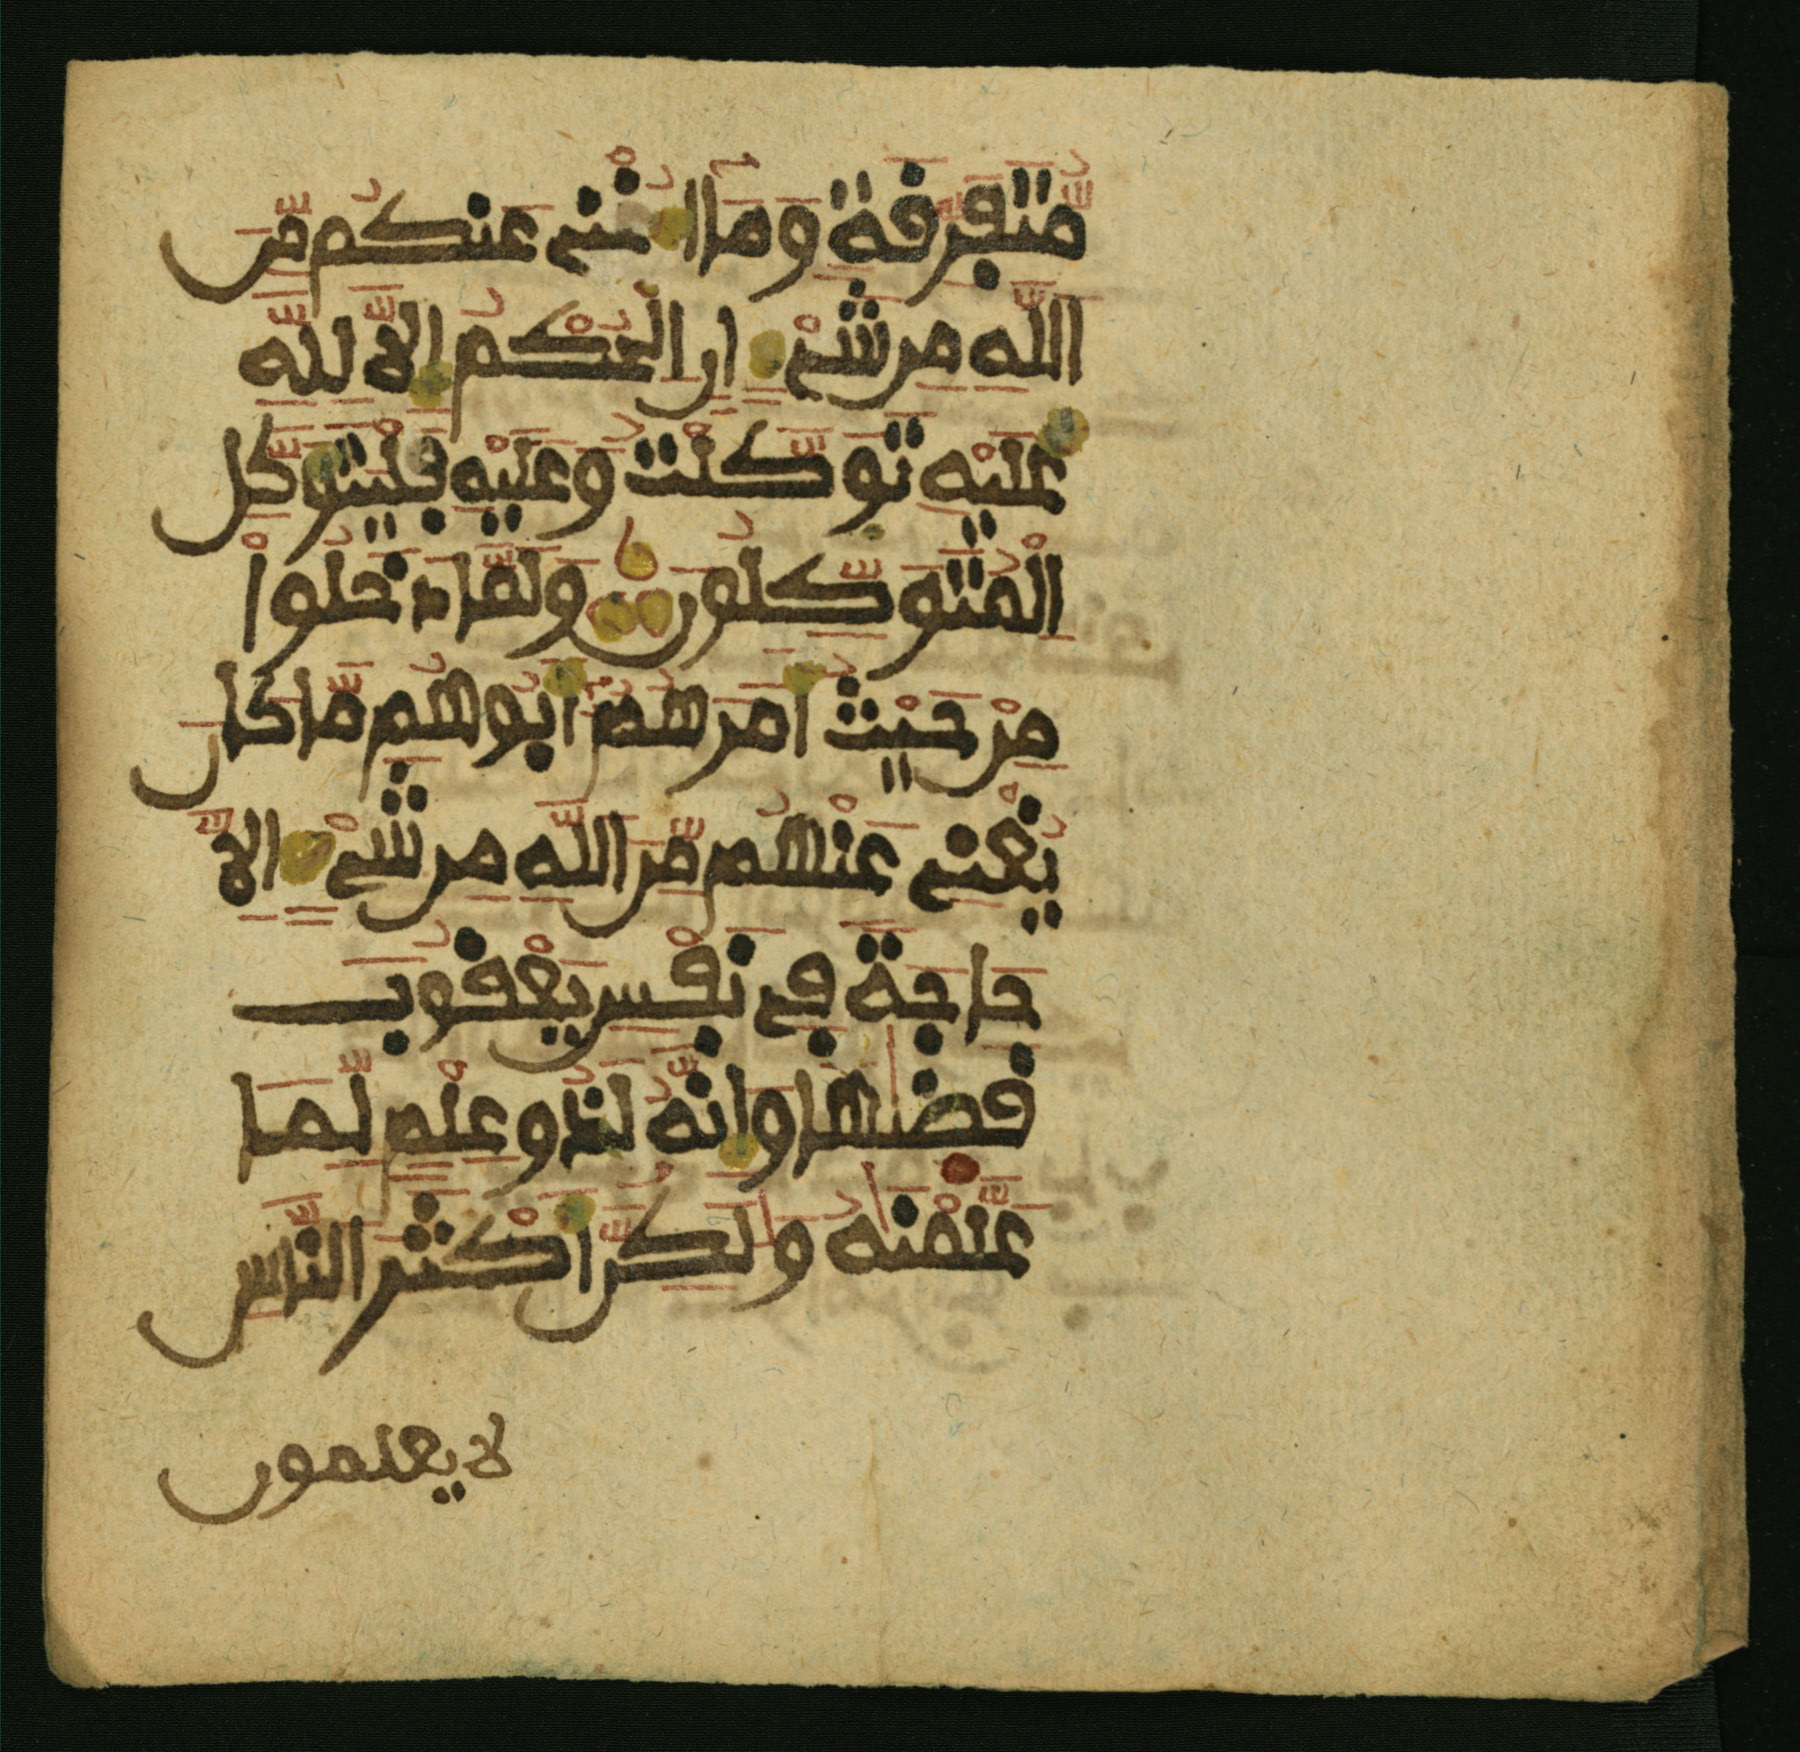 مُّتَفَرِّقَةٍ وَمَآ أُغْنِے عَنكُم مِّنَ
اَللَّهِ مِن شَےْءٍ إِنِ اِلْحُكْمُ إِلَّا لِلَّهِ
عَلَيْهِ تَوَكَّلْتُ وَعَلَيْهِ فَلْيَتَوَكَّلِ
اِلْمُتَوَكِّلُونَ وَلَمَّا دَخَلُواْ
مِنْ حَيْثُ أَمَرَهُمُ أَبُوهُم مَّا كَانَ
يُغْنِے عَنْهُم مِّنَ اَللَّهِ مِن شَےْءٍ اِلَّا
حَاجَةً فِے نَفْسِ يَعْقُوبَ
قَضَىٰهَا وَإِنَّهُ لَذُو عِلْمٍ لِّمَا
عَلَّمْنَٰهُ وَلَٰكِنَّ أَكْثَرَ اَلنَّاسِ
لا يعلمون